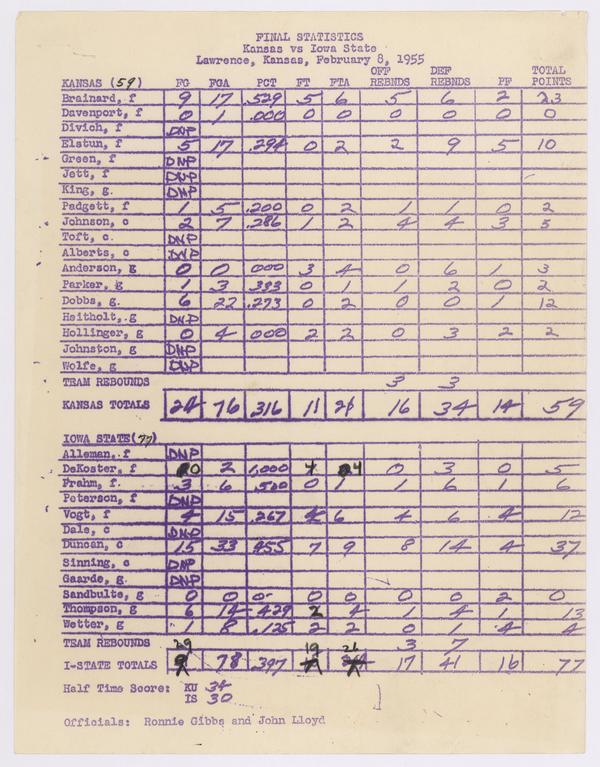 FINAL STATISTICS
Kansas vs Iowa State
Lawrence, Kansas, February 8, 1955
KANSAS (59) FG FGA PCT FT FTA OFF REBNDS DEF REBNDS PF TOTAL POINTS
Brainard, f 9 17 .529 5 6 5 6 2 23
Davenport, f 0 1 .000 0 0 0 0 0 0
Divich, f DNP
Elstun, f 5 17 .294 0 2 2 9 5 10
Green, f DNP
Jett, f DNP
King, g. DNP
Padgett, f 1 5 .200 0 2 1 1 0 2
Johnson, c 2 7 .286 1 2 4 4 3 5
Toft, c. DNP
Alberts, c DNP
Anderson, g 0 0 000 3 4 0 6 1 3
Parker, g. 1 3 .333 0 1 1 2 0 2
Dobbs, g. 6 22 .273 0 2 0 0 1 12
Heitholt, g DNP
Hollinger, g 0 4 000 2 2 0 3 2 2
Johnston, g DNP
Wolfe, g DNP
TEAM REBOUNDS 3 3
KANSAS TOTALS 24 76 316 11 21 16 34 14 59
IOWA STATE (77)
Alleman, f DNP
DeKoster, f 2 1,000 4 0 3 0 5
Frahm, f. 3 6 .500 0 1 1 6 1 6
Peterson, f DNP
Vogt, f 4 15 .267 4 6 4 6 4 12
Dale, c DNP
Duncan, c 15 33 .455 7 9 8 14 4 37
Sinning, c DNP
Gaarde, g. DNP
Sandbulte, g 0 0 0- 0 0 0 0 2 0
Thompson, g 6 14 .429 2 4 1 4 1 13
Wetter, g 1 8 .125 2 2 0 1 4 4
TEAM REBOUNDS 3 7
I-STATE TOTALS 29 78 .397 19 17 41 16 77
Half Time Score: KU 34
IS 30
Officials: Ronnie Gibbs and John Lloyd